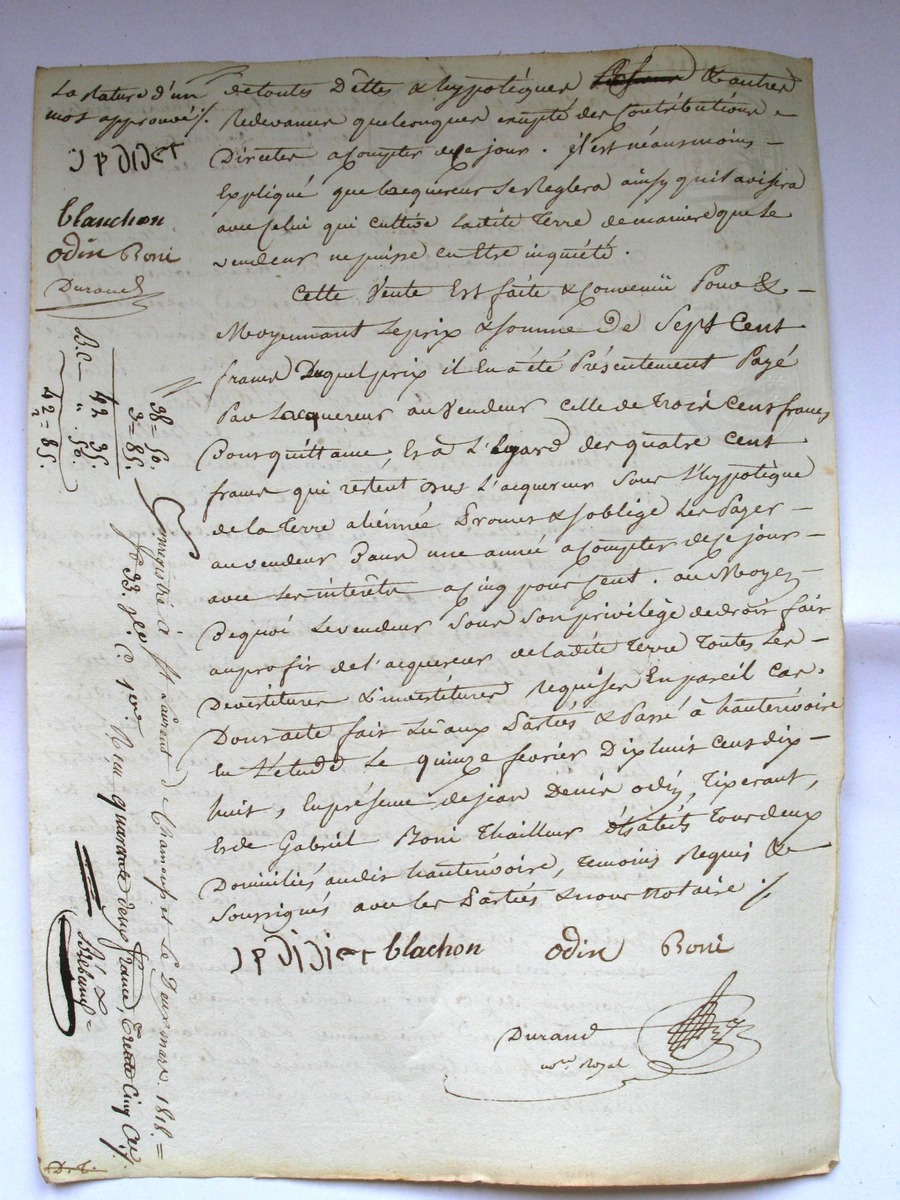 La rature d'un
mot approuvé /.
jp didier
blanchon
odin Boni
Durand
de touts Dettes & hypotéques & autres
Redevances quelconques excepté des Contributions
Directes a Compter de ce jour. il est néansmoins
Expliqué que l'acquereur se Reglera ainsy quil avisera
avec Celui qui cultive Ladite Terre de maniere que Le
vendeur ne puisse en Etre inquiété.
Cette Vente Est faite & Convenüe Pour &
Moyennant Le prix & somme De Sept Cent
francs Duquel prix il En a été Présentement Payé
Par L'acquereur au Vendeur celle de Trois Cent francs
Pour quittance, Et a L'Egard des quatre Cent
francs qui restent dus L'acquereur sous L'hypotèque
de la Terre aliénnée Promet & soblige Les Payer
au vendeur Dans une année a Compter de Ce jour
avec Les interêts a Cinq pour Cent. au Moyen
De quoi Le vendeur sous son privilège de droit fait
au profit de l'acquereur de ladite Terre Toutes Les
Devêstitures & investitures Requises En pareil Cas.
Dont acte fait Lu aux Parties & Passé à hauterivoire
En L'etude Le quinze fevrier Dix huit Cent dix
huit, En présence de jean Denis odin, Tixerant,
Et de Gabriel Boni Thailleur d'habits Tous deux
Domiciliés audit hauterivoire, Temoins Requis &
Soussignés avec Les Parties & nous notaire /.
jp didier blachon odin Boni
Durand
nore Royal
Enregistré à St Laurent de Chamousset Le Deux mars 1818.
fo 33. Ro C. 1re. Reçu quarante deux francs, Trente Cinq Ces.
38 = 50.
3 = 85.
42 . 35.
42 = 85.